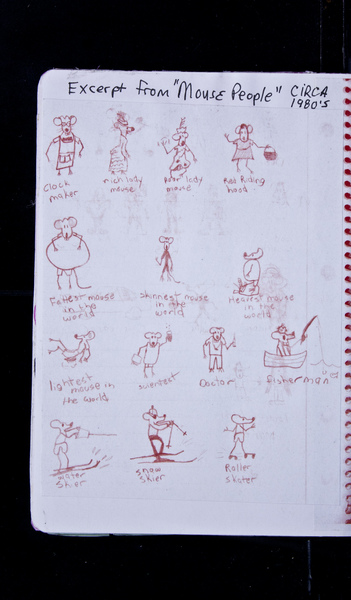 Excerpt from "Mouse People" CIRCA
1980's
Clock
maker
rich lady
mouse
Poor lady
mouse
Red Riding
hood
Fattest mouse
in the
world
Skinnest mouse
in the
world
in the
world
lightest
mouse in
the world
scientest
Doctor
fisherman
water
skier
snow
skier
Roller
skater